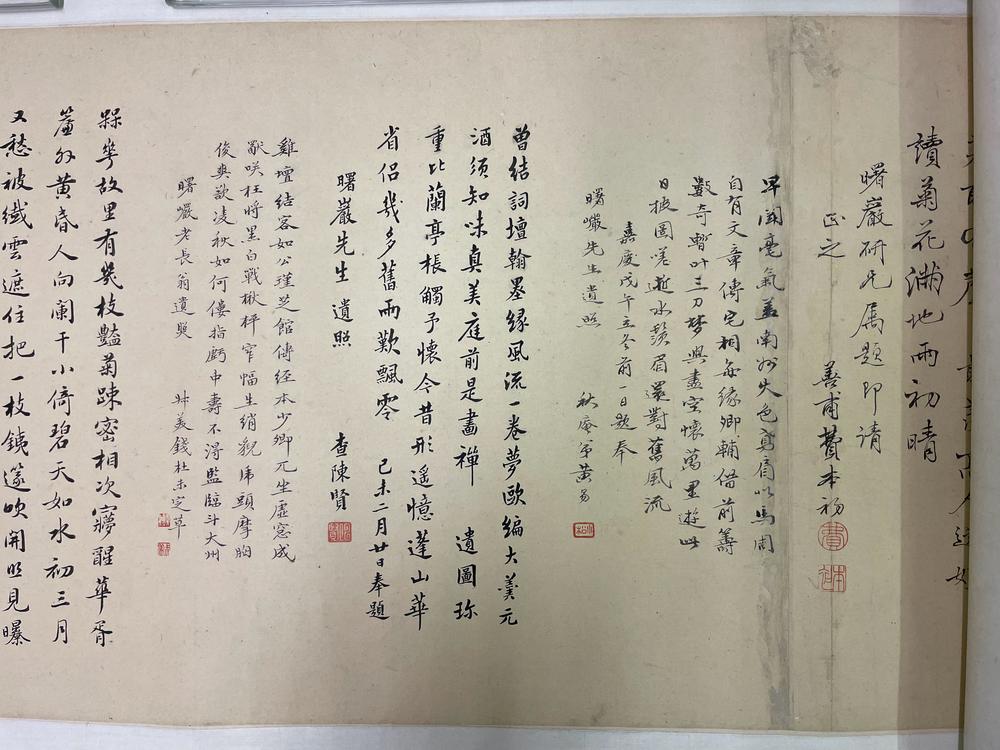 讀菊花滿地雨初晴
曙巖研兄屬題即請
正之
善甫費本初
早聞毫氣蓋南州失色鳶肩以馬周
自有文章傳宅相每緣卿輔借前籌
數奇暫叶三刀夢興盡空懷萬里遊此
日披圖嗟逝水鬚眉還對舊風流
嘉慶戊午立冬前一日題奉
曙巖先生遺照
秋庵弟黃易
曾結詞壇翰墨緣風流一卷夢歐編大羹元
酒須知味真美庭前是畫禪
遺圖珎
重比蘭亭棖觸予懷今昔形遙憶蓬山華
省侶幾多舊雨歎飄零
己未二月廿日奉題
曙巖先生遺照
查陳賢
雞壇結客如公瑾芝館傳經本少卿兀坐虛窓成
獻咲枉將黑白戰楸枰窄幅生綃貌席頭摩胸
俊爽歘凌秋如何僂指虧中壽不淂監臨斗大州
曙巖老長翁遺照
錢杜未定草
槑華故里有幾枝豔菊踈密相次寱醒華胥
簾外黃昏人向闌干小倚碧天如水初三月
又愁被纖雲遮住把一枝銕篴吹開照見曝